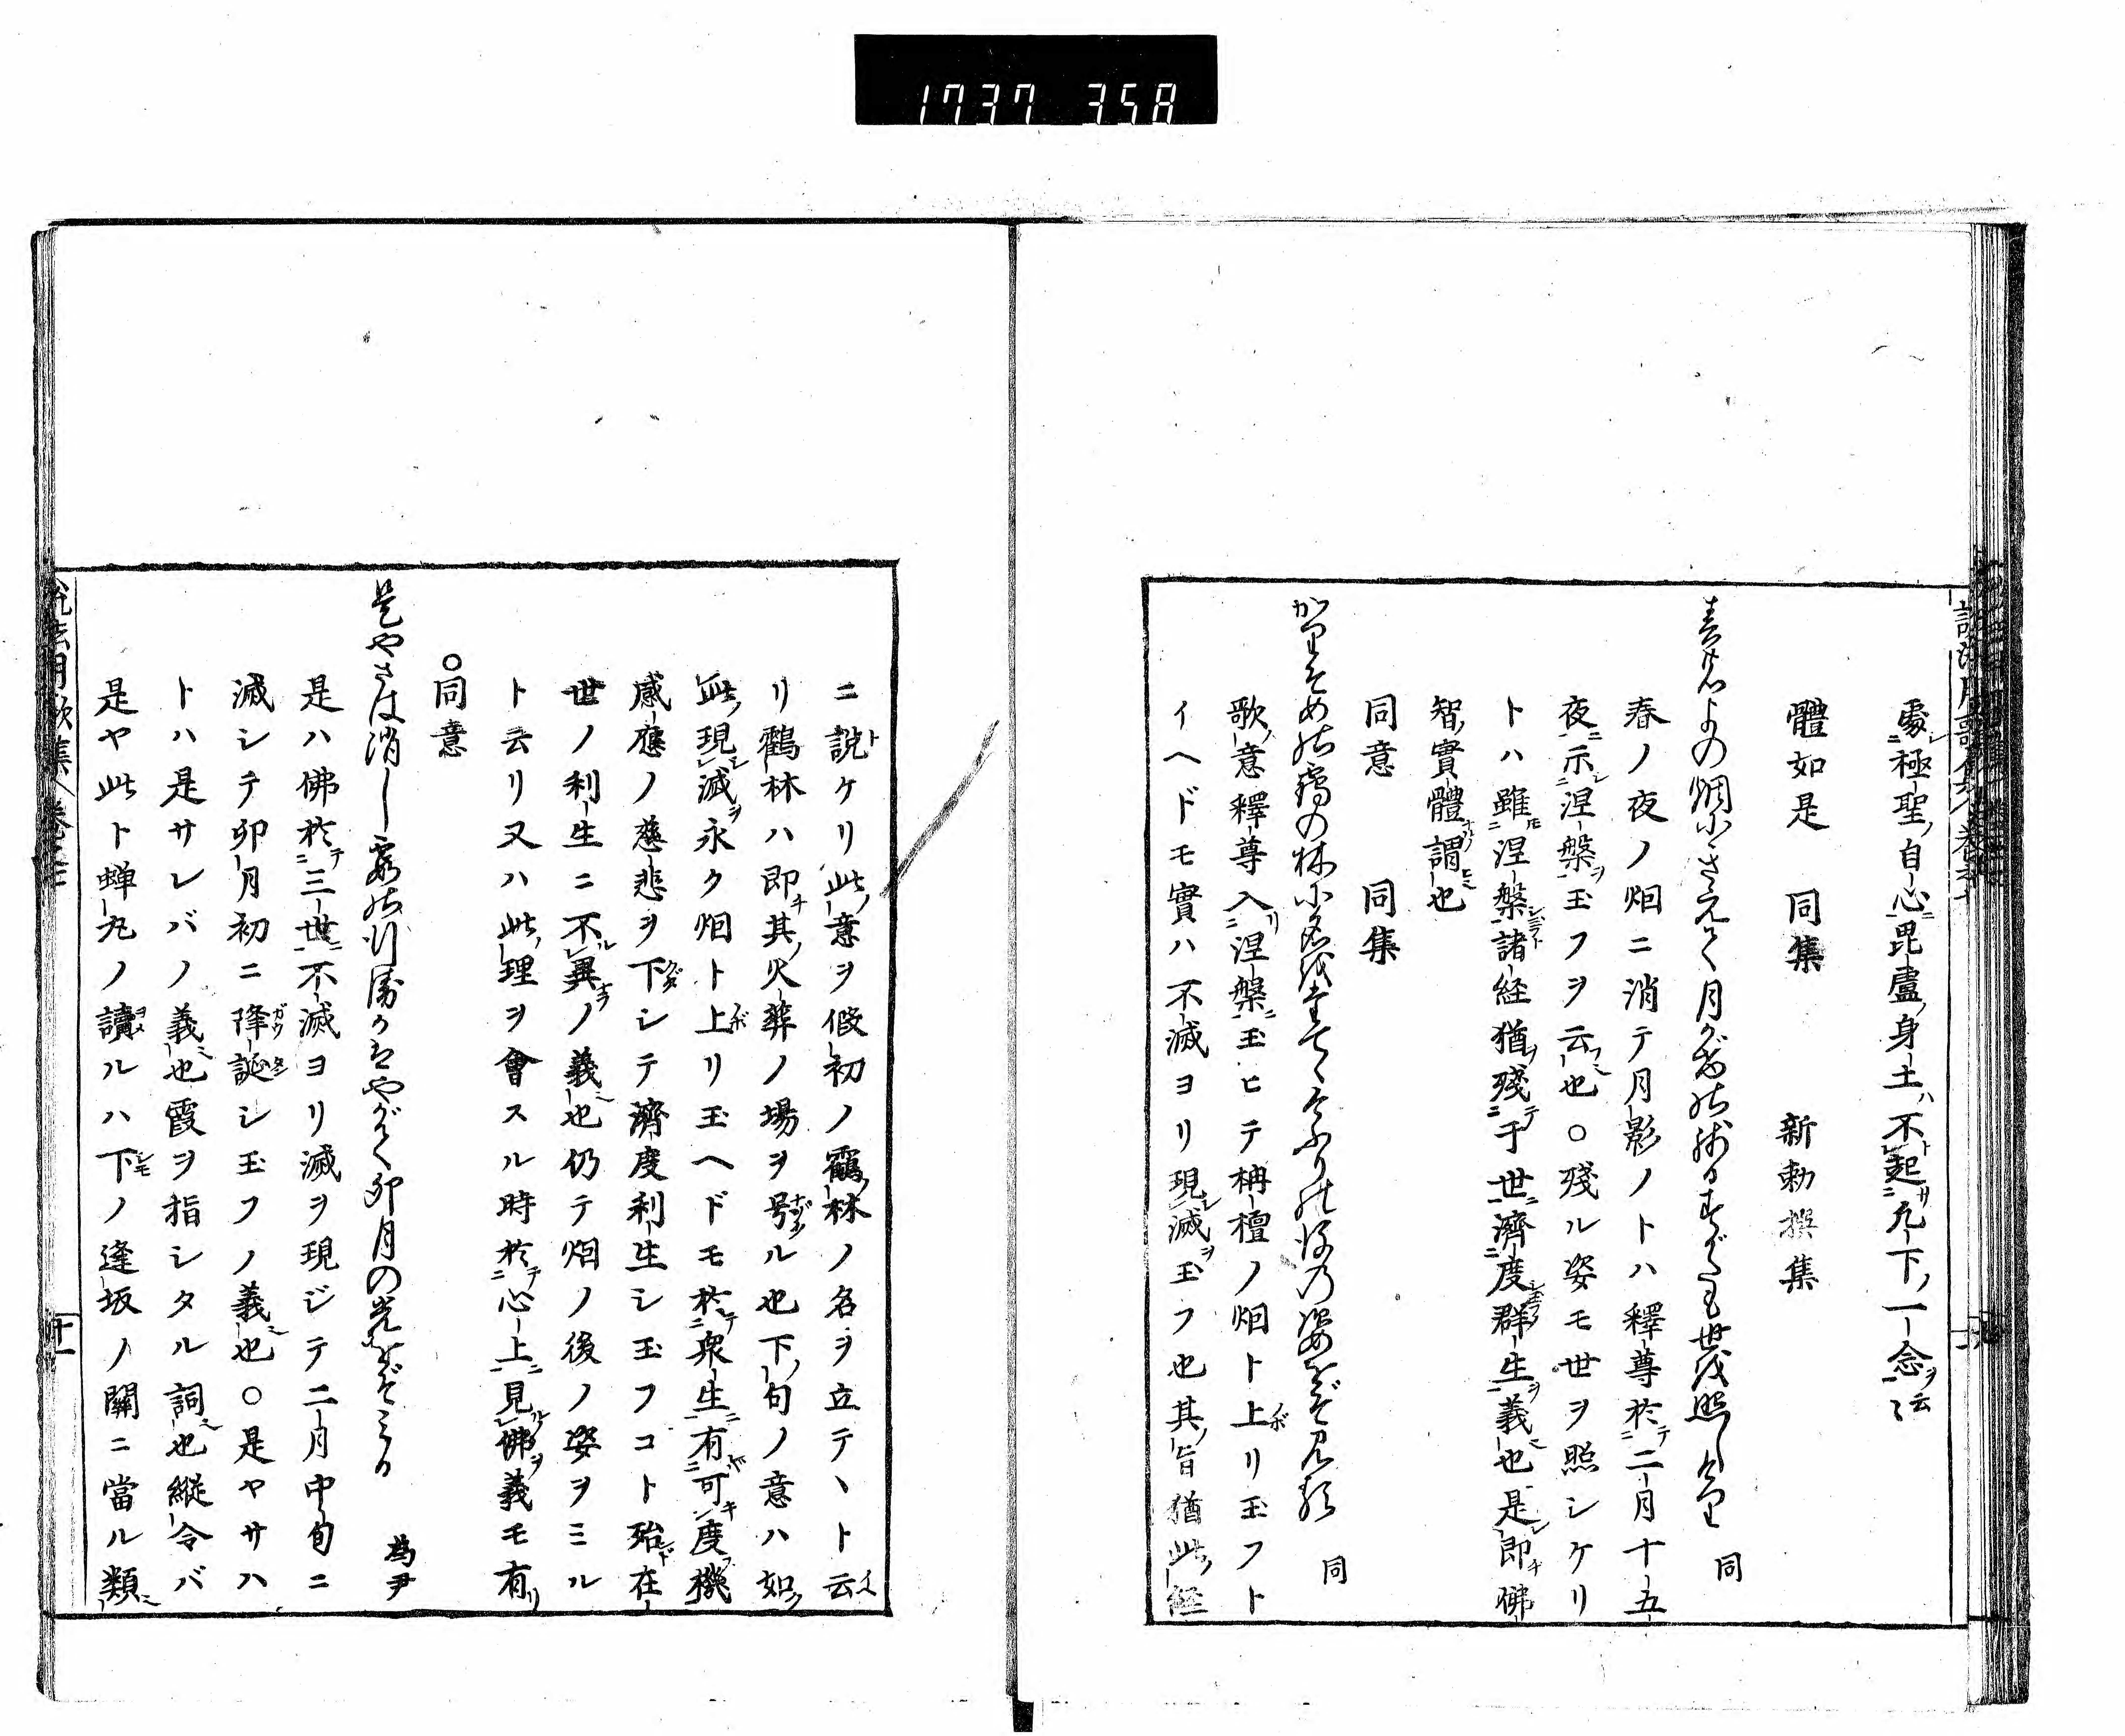 1737 358
處極聖自心毘盧身土不起凡下一念云〻
體如是 同集 新勅撰集
春のよの烟にきえて月かげの残るすがたも世を照しけり 同
春ノ夜ノ烟ニ消テ月影ノトハ釋尊於二月十五
夜示涅槃玉フヲ云也○殘ル姿モ世ヲ照シケリ
トハ雖涅槃諸経猶殘于世濟度群生義也是即佛
智實體謂也
同意 同集
かりそめの鶴の林に名を立てゝ
歌意釋尊入涅槃玉ヒテ栴檀ノ烟ト上リ玉フト
イヘドモ實ハ不滅ヨリ現滅玉フ也其旨猶此経
ニ說ケリ此意ヲ假初ノ鶴林ノ名ヲ立テヽト云
リ鶴林ハ即其火葬ノ場ヲ号ル也下句ノ意ハ如
此現滅永ク烟ト上リ玉ヘドモ於衆生有可度機
感應ノ慈悲ヲ下シテ濟度利生シ玉フコト殆在
世ノ利生ニ不異ノ義也仍テ烟ノ後ノ姿ヲミル
ト云リ又ハ此理ヲ會スル時於心上見佛義モ有
○同意
是やさは消し霞の やがて卯月の光をぞみる 為尹
是ハ佛於三世不滅ヨリ滅ヲ現ジテ二月中旬ニ
滅シテ卯月初ニ降誕シ玉フノ義也○是ヤサハ
トハ是サレバノ義也霞ヲ指シタル詞也縱令バ
是ヤ此ト蝉丸ノ讀ルハ下ノ逢坂ノ關ニ當ル類
十一